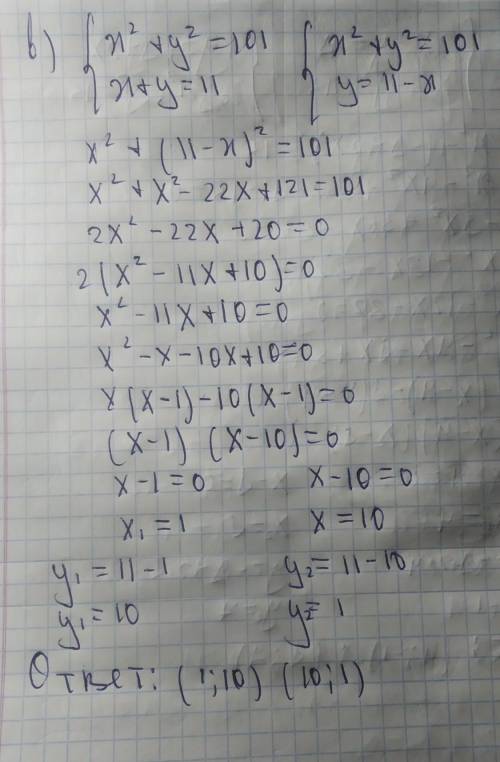 в) { x² + y² = 101   { x² + y² = 101
x + y = 11   y = 11 - x
x² + (11 - x)² = 101
x² + x² - 22x + 121 = 101
2x² - 22x + 20 = 0
2(x² - 11x + 10) = 0
x² - 11x + 10 = 0
x² - x - 10x + 10 = 0
x(x - 1) - 10(x - 1) = 0
(x - 1) (x - 10) = 0
x - 1 = 0   x - 10 = 0
x₁ = 1   x = 10
y₁ = 11 - 1   y₂ = 11 - 10
y₁ = 10   y₂ = 1
Ответ: (1; 10) (10; 1)